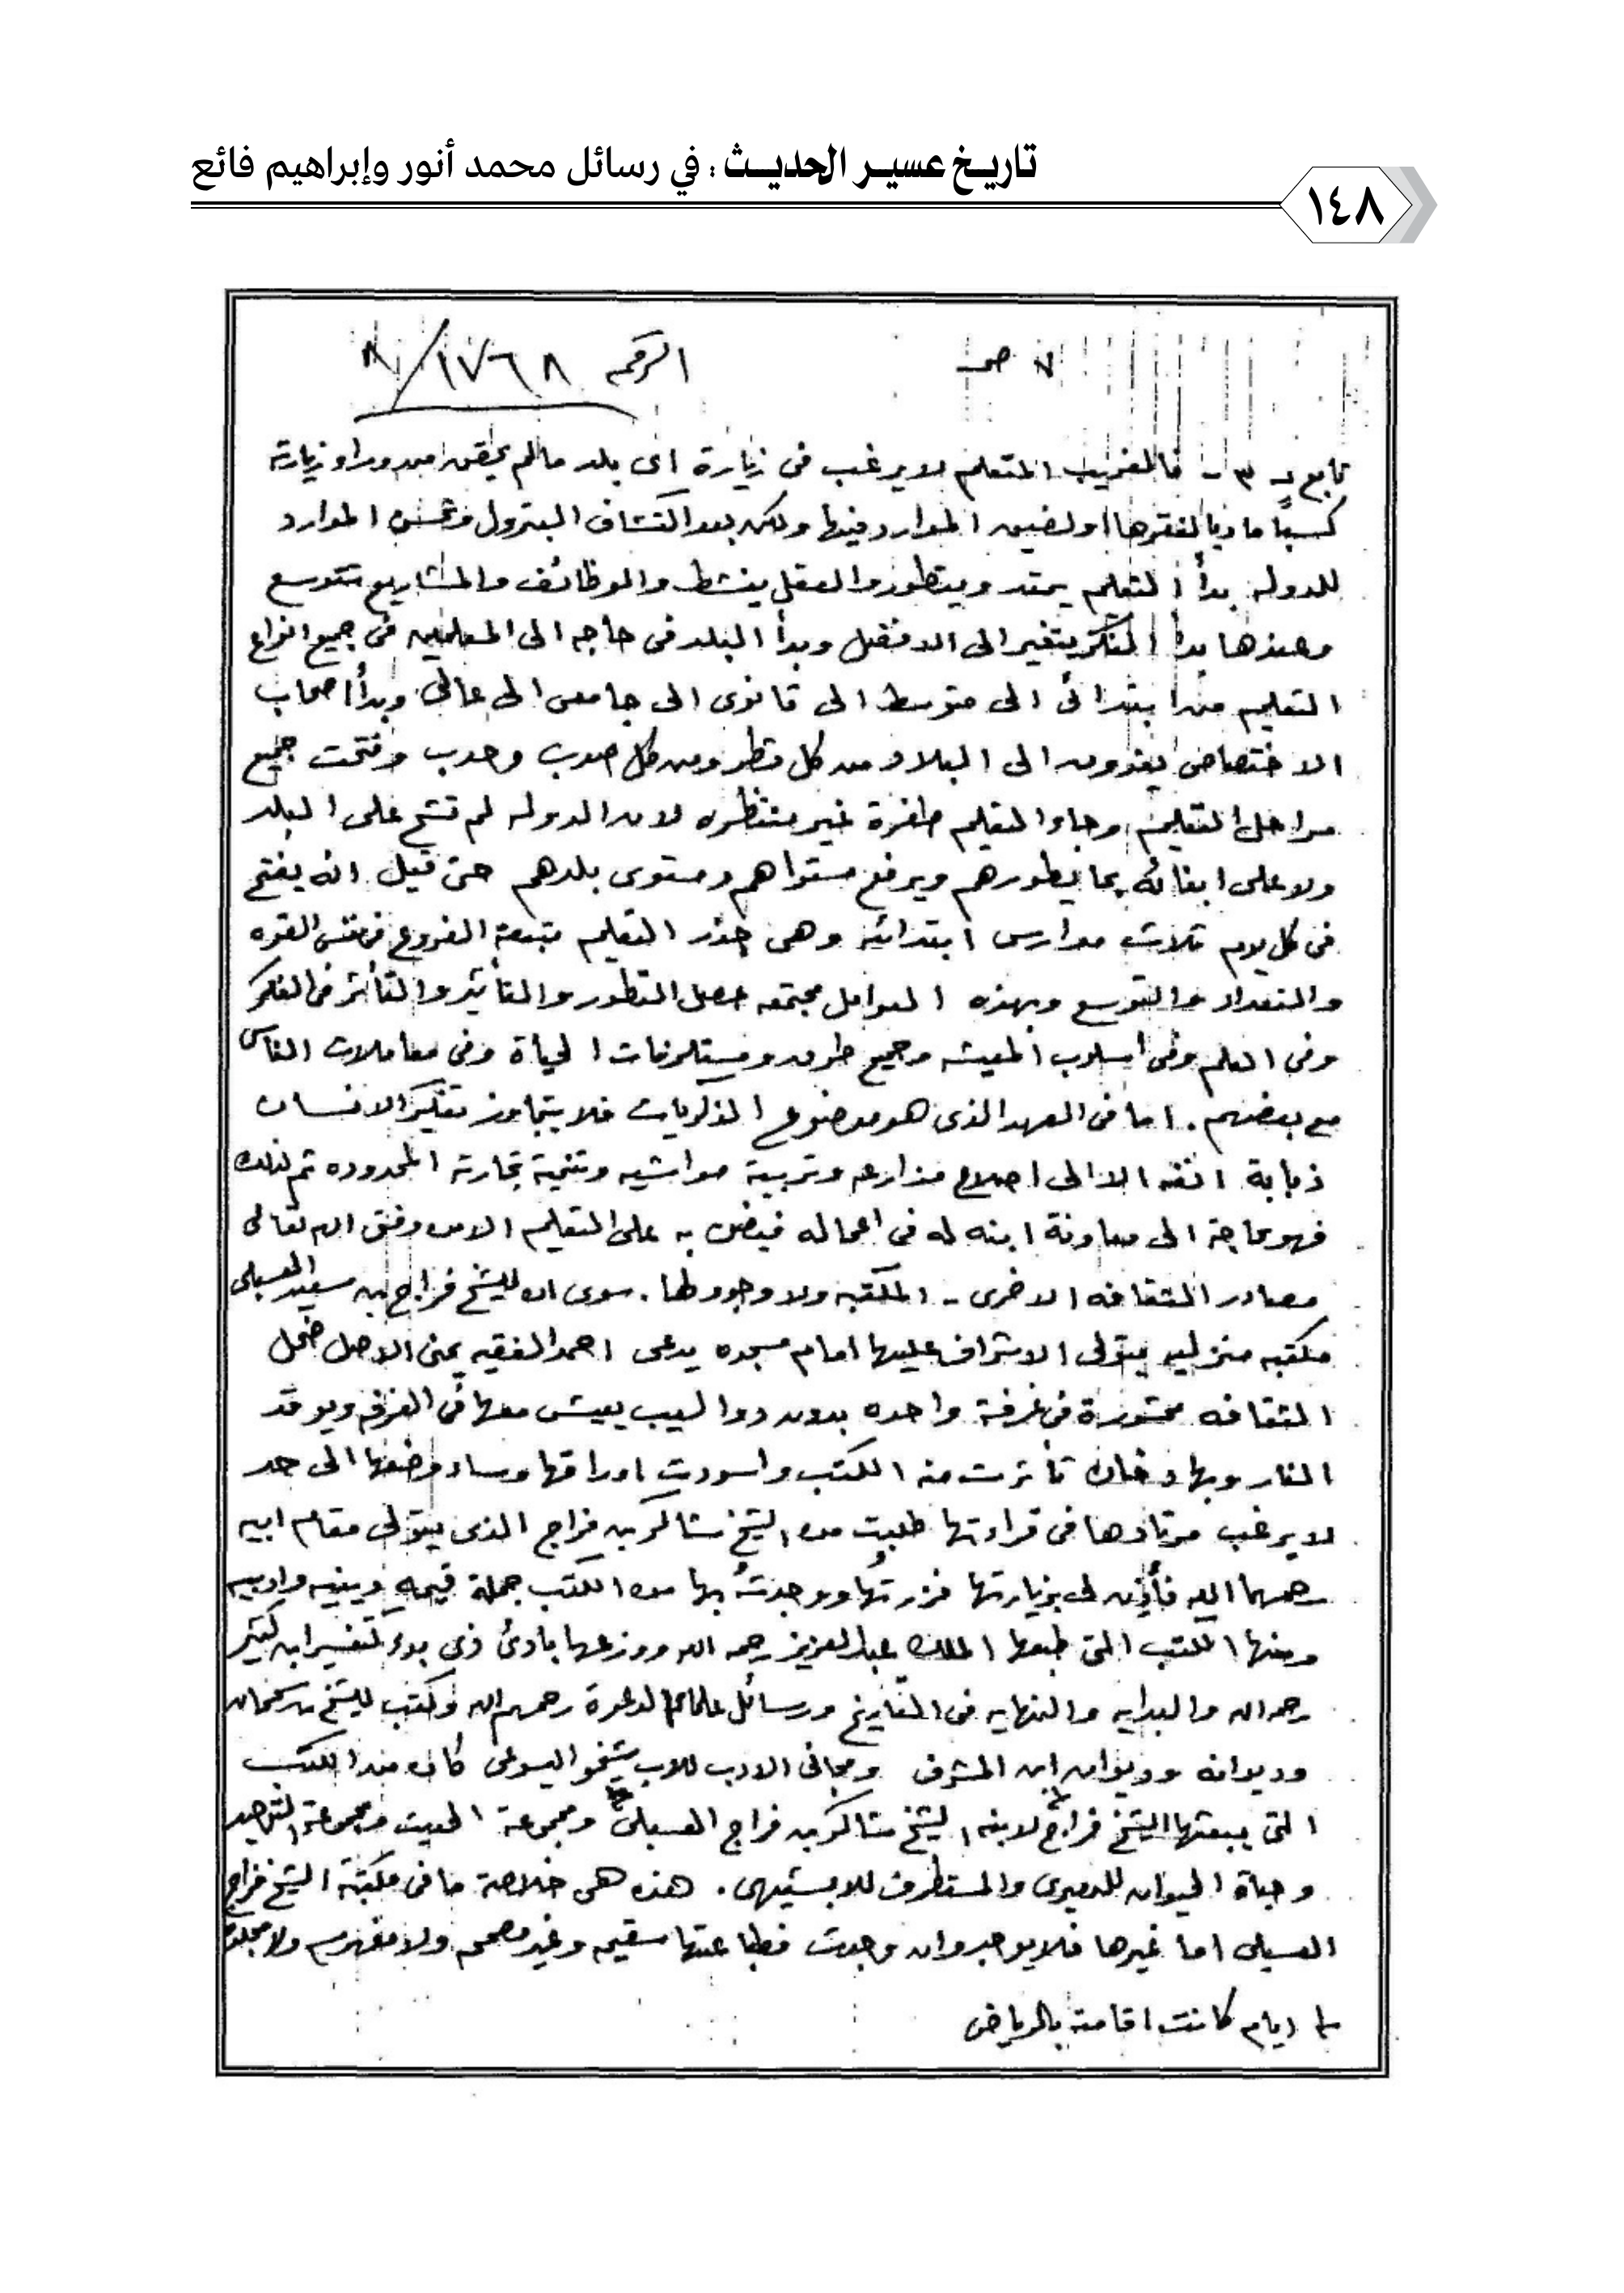 تاريخ عسير الحديث : في رسائل محمد أنور وإبراهيم فائع
١٤٨
٧ صـ الرقم ١٧٦٨/٨
تابع جـ ٣ - فالغريب المتعلم لا يرغب فى زيارة اى بلد مالم يحقق من وراء زيارته
كسباً ماديا لفقرها او لضيق الموارد فيها ولكن بعد اكتشاف البترول وتحسن الموارد
للدوله بدأ التعليم يمتد ويتطور والعقل ينشط والوظائف والمشاريع تتوسع
وعندها بدأ الفكر يتغير الى الافضل وبدأ البلد فى حاجه الى المعلمين فى جميع انواع
التعليم من ابتدائى الى متوسط الى ثانوى الى جامعى الى عالى وبدأ اصحاب
الاختصاص يفدون الى البلاد من كل قطر ومن كل صوب وحدب وفتحت جميع
مراحل التعليم وجاء التعليم طفرة غير منتظره لان الدوله لم تشح على البلد
ولا على ابنائه بما يطورهم ويرفع مستواهم ومستوى بلدهم حتى قيل انه يفتح
فى كل يوم ثلاث مدارس ابتدائيه وهى جذر التعليم متبعة الفروع فى نفس القوه
والتعداد والتوسع وبهذه العوامل مجتمعه حصل التطور والتأثير والتأثر فى الفكر
وفى العلم وفى اسلوب المعيشه وجميع طرق ومستلزمات الحياة وفى معاملات الناس
مع بعضهم . اما فى العهد الذى هو موضوع الذكريات فلا يتجاوز تفكير الانسان
ذبابة انفه الا الى اصلاح مزارعه وتربية مواشيه وتنمية تجارته المحدوده ثم لذلك
فهو بحاجة الى معاونة ابنه له فى اعماله فيضن به على التعليم الا من وفق الله تعالى
مصادر الثقافه الاخرى - المكتبه ولا وجود لها . سوى ان للشيخ فراج بن سعيد العسبلى
مكتبه منزليه يتولى الاشراف عليها امام مسجده يدعى احمد الفقيه يمنى الاصل ضحل
الثقافه محشورة فى غرفة واحده بدون دواليب يعيش معها فى الغرفه ويوقد
النار وبها دخان تأثرت منه الكتب واسودت اوراقها وساء وضعها الى حد
لا يرغب مرتادها فى قراءتها طلبت من الشيخ شاكر بن فراج الذى يتولى مقام ابيه
رحمهما الله فأذن لى بزيارتها فزرتها ووجدت بها من الكتب جملة قيمه دينيه وادبيه
ومنها الكتب التى طبعها الملك عبدالعزيز رحمه الله ووزعها بادئ ذى بدء كتفسير ابن كثير
رحمه الله والبدايه والنهايه فى التاريخ ورسائل علماء الدعوة رحمهم الله وكتب للشيخ بن سحمان
وديوانه وديوان ابن المشرف ومجانى الادب للاب شيخو اليسوعى كان من الكتب
التى يبعثها الشيخ فراج لابنه الشيخ شاكر بن فراج العسبلى ومجموعة الحديث ومجموعة التوحيد
وحياة الحيوان للدميرى والمستطرف للابشيهى . هذه هى خلاصة ما فى مكتبة الشيخ فراج
العسبلى اما غيرها فلا يوجد وان وجدت فطباعتها سقيمه وغير مصححه ولا مفهرسه ولا مجلده
ايام كانت اقامته بالرياض